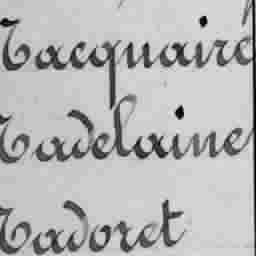 Macquaire
Madelaine
Madoret